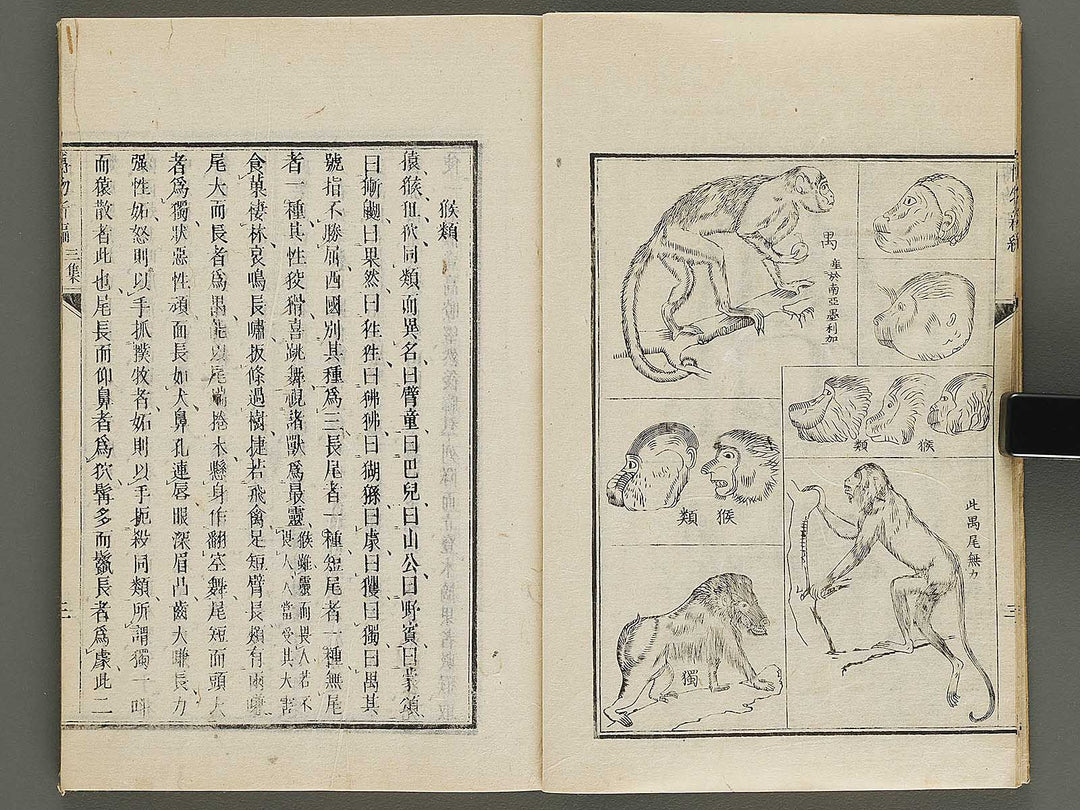 禺
產於南亞墨利加
猴類
猴類
此禺尾無力
獨
三
猴類
猿猴狙狖同類而異名曰臂童曰巴兒曰山公曰野賓曰蒙頌
曰獑䶉曰果然曰狌狌曰狒狒曰猢猻曰㺉曰玃曰獨曰禺其
號指不勝屈西國別其種爲三長尾者一種短尾者一種無尾
者一種其性狡猾喜跳舞視諸獸爲最靈猴雖靈而畏人若不畏人人當受其大害
食菓棲林哀鳴長嘯扳條過樹捷若飛禽足短臂長頰有兩嗛
尾大而長者爲禺能以尾端捲木懸身作翻空舞尾短而頭大
者爲獨狀惡性頑面長如犬鼻孔連唇眼深眉凸齒大嗛長力
强性妬怒則以手抓撲牧者妬則以手扼殺同類所謂獨一叫
而猿散者此也尾長而仰鼻者爲狖髯多而鬣長者爲㺉此二
博物新編
三集
三